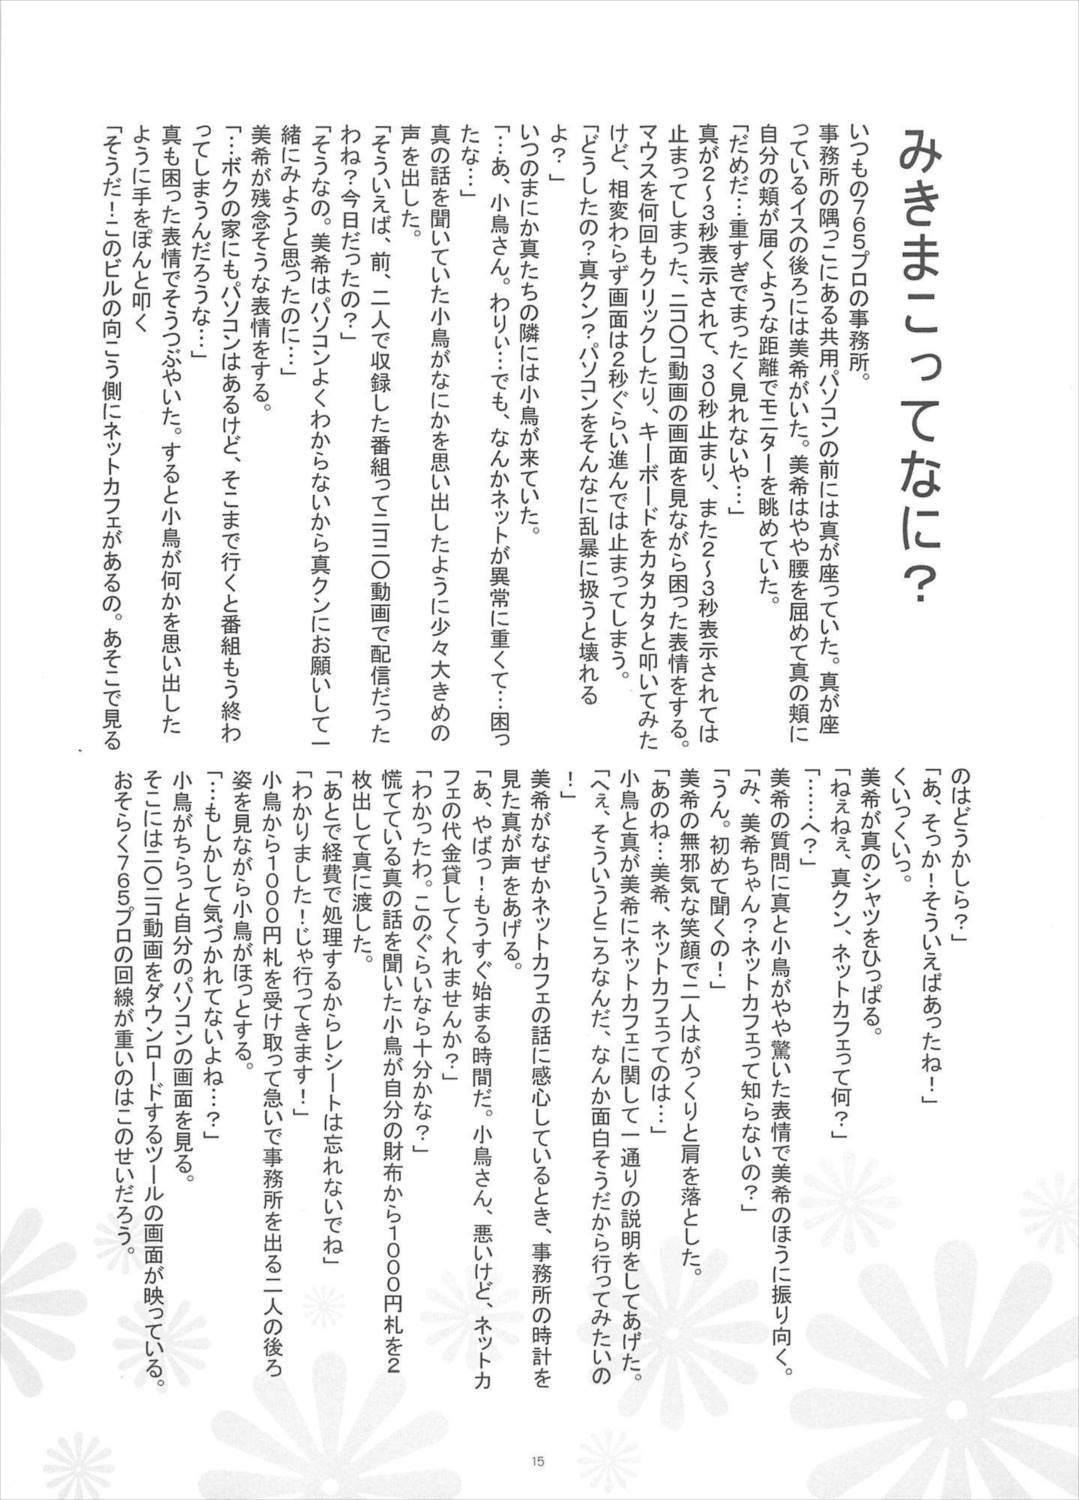 みきまこってなに？
いつもの７６５プロの事務所。
事務所の隅っこにある共用パソコンの前には真が座っていた。真が座
っているイスの後ろには美希がいた。美希はやや腰を屈めて真の頬に
自分の頬が届くような距離でモニターを眺めていた。
「だめだ…重すぎでまったく見れないや…」
真が２～３秒表示されて、３０秒止まり、また２～３秒表示されては
止まってしまった、ニコ〇コ動画の画面を見ながら困った表情をする。
マウスを何回もクリックしたり、キーボードをカタカタと叩いてみた
けど、相変わらず画面は２秒ぐらい進んでは止まってしまう。
「どうしたの？真クン？パソコンをそんなに乱暴に扱うと壊れる
よ？」
いつのまにか真たちの隣には小鳥が来ていた。
「…あ、小鳥さん。わりぃ…でも、なんかネットが異常に重くて…困っ
たな…」
真の話を聞いていた小鳥がなにかを思い出したように少々大きめの
声を出した。
「そういえば、前、二人で収録した番組ってニコ二〇動画で配信だった
わね？今日だったの？」
「そうなの。美希はパソコンよくわからないから真クンにお願いして一
緒にみようと思ったのに…」
美希が残念そうな表情をする。
「…ボクの家にもパソコンはあるけど、そこまで行くと番組もう終わ
ってしまうんだろうな…」
真も困った表情でそうつぶやいた。すると小鳥が何かを思い出した
ように手をぽんと叩く
「そうだ！このビルの向こう側にネットカフェがあるの。あそこで見る
のはどうかしら？」
「あ、そっか！そういえばあったね！」
くいっくいっ。
美希が真のシャツをひっぱる。
「ねぇねぇ、真クン、ネットカフェって何？」
「……へ？」
美希の質問に真と小鳥がやや驚いた表情で美希のほうに振り向く。
「み、美希ちゃん？ネットカフェって知らないの？」
「うん。初めて聞くの！」
美希の無邪気な笑顔で二人はがっくりと肩を落とした。
「あのね…美希、ネットカフェってのは…」
小鳥と真が美希にネットカフェに関して一通りの説明をしてあげた。
「へぇ、そういうところなんだ、なんか面白そうだから行ってみたいの
！」
美希がなぜかネットカフェの話に感心しているとき、事務所の時計を
見た真が声をあげる。
「あ、やばっ！もうすぐ始まる時間だ。小鳥さん、悪いけど、ネットカ
フェの代金貸してくれませんか？」
「わかったわ。このぐらいなら十分かな？」
慌てている真の話を聞いた小鳥が自分の財布から１０００円札を２
枚出して真に渡した。
「あとで経費で処理するからレシートは忘れないでね」
「わかりました！じゃ行ってきます！」
小鳥から１０００円札を受け取って急いで事務所を出る二人の後ろ
姿を見ながら小鳥がほっとする。
「…もしかして気づかれてないよね…？」
小鳥がちらっと自分のパソコンの画面を見る。
そこには二〇ニコ動画をダウンロードするツールの画面が映っている。
おそらく７６５プロの回線が重いのはこのせいだろう。
15